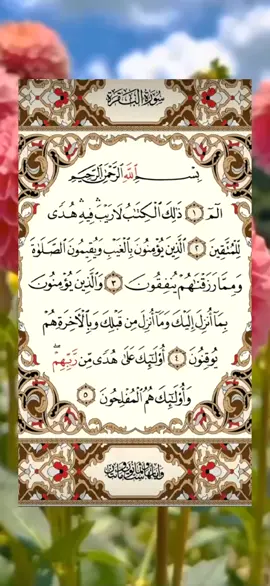 سُورَةُ البَقَرَةِ
بِسْمِ اللَّهِ الرَّحْمَٰنِ الرَّحِيمِ
الٓمٓ ١ ذَٰلِكَ ٱلْكِتَٰبُ لَا رَيْبَ ۛ فِيهِ ۛ هُدًى
لِّلْمُتَّقِينَ ٢ ٱلَّذِينَ يُؤْمِنُونَ بِٱلْغَيْبِ وَيُقِيمُونَ ٱلصَّلَوٰةَ
وَمِمَّا رَزَقْنَٰهُمْ يُنفِقُونَ ٣ وَٱلَّذِينَ يُؤْمِنُونَ
بِمَآ أُنزِلَ إِلَيْكَ وَمَآ أُنزِلَ مِن قَبْلِكَ وَبِٱلْأٓخِرَةِ هُمْ
يُوقِنُونَ ٤ أُو۟لَٰٓئِكَ عَلَىٰ هُدًى مِّن رَّبِّهِمْ ۖ
وَأُو۟لَٰٓئِكَ هُمُ ٱلْمُفْلِحُونَ ٥